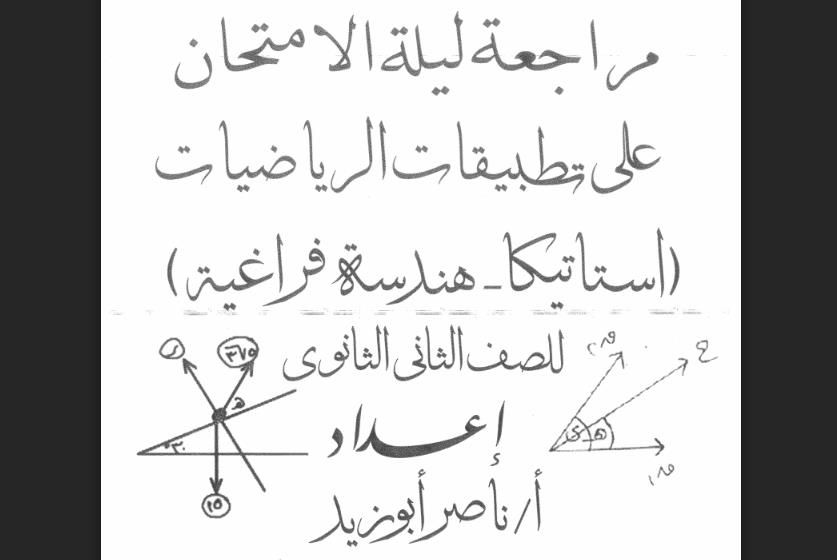 مراجعة ليلة الامتحان
على تطبيقات الرياضيات
(استاتيكا - هندسة فراغية)
للصف الثانى الثانوى
إعداد
أ/ ناصر أبوزيد
٣٠°
١٥
هـ
هـ
ى
ع